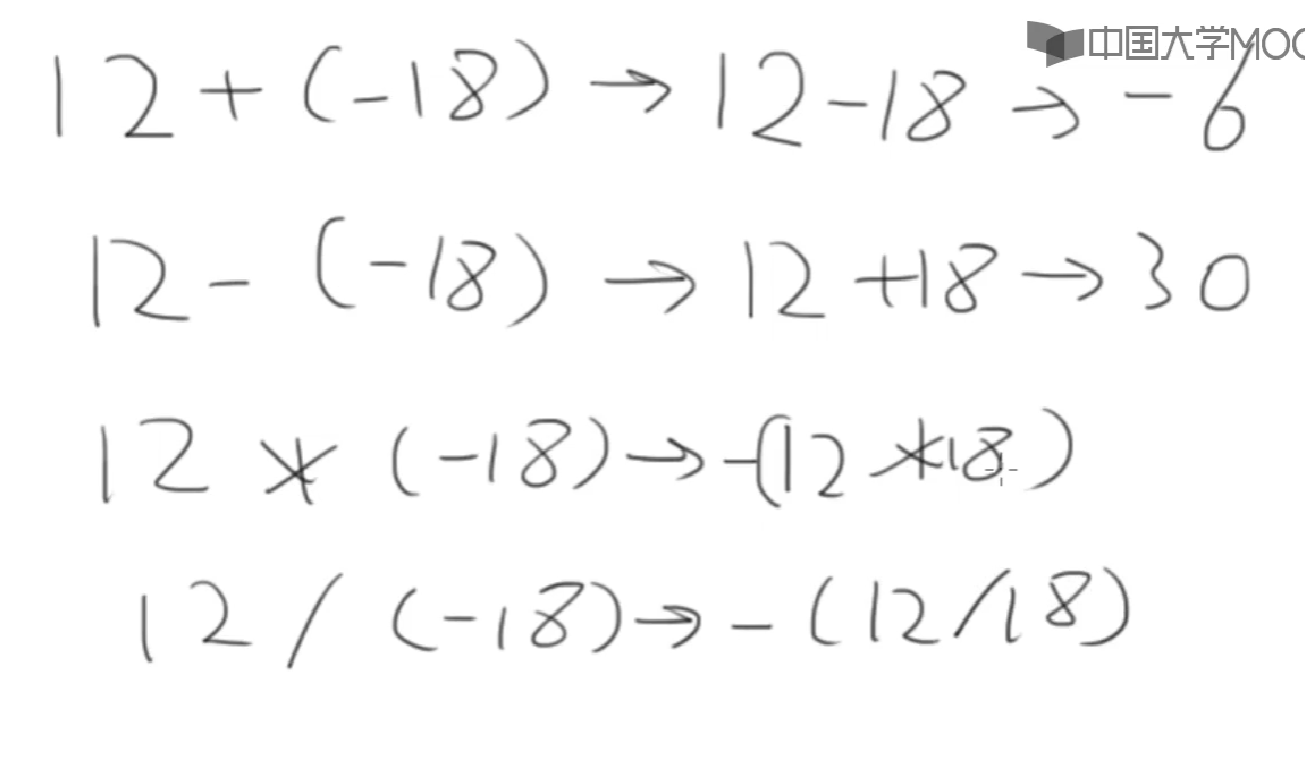 中国大学MOO
12+(-18)→12-18→-6
12-(-18)→12+18→30
12*(-18)→-(12*18)
12/(-18)→-(12/18)